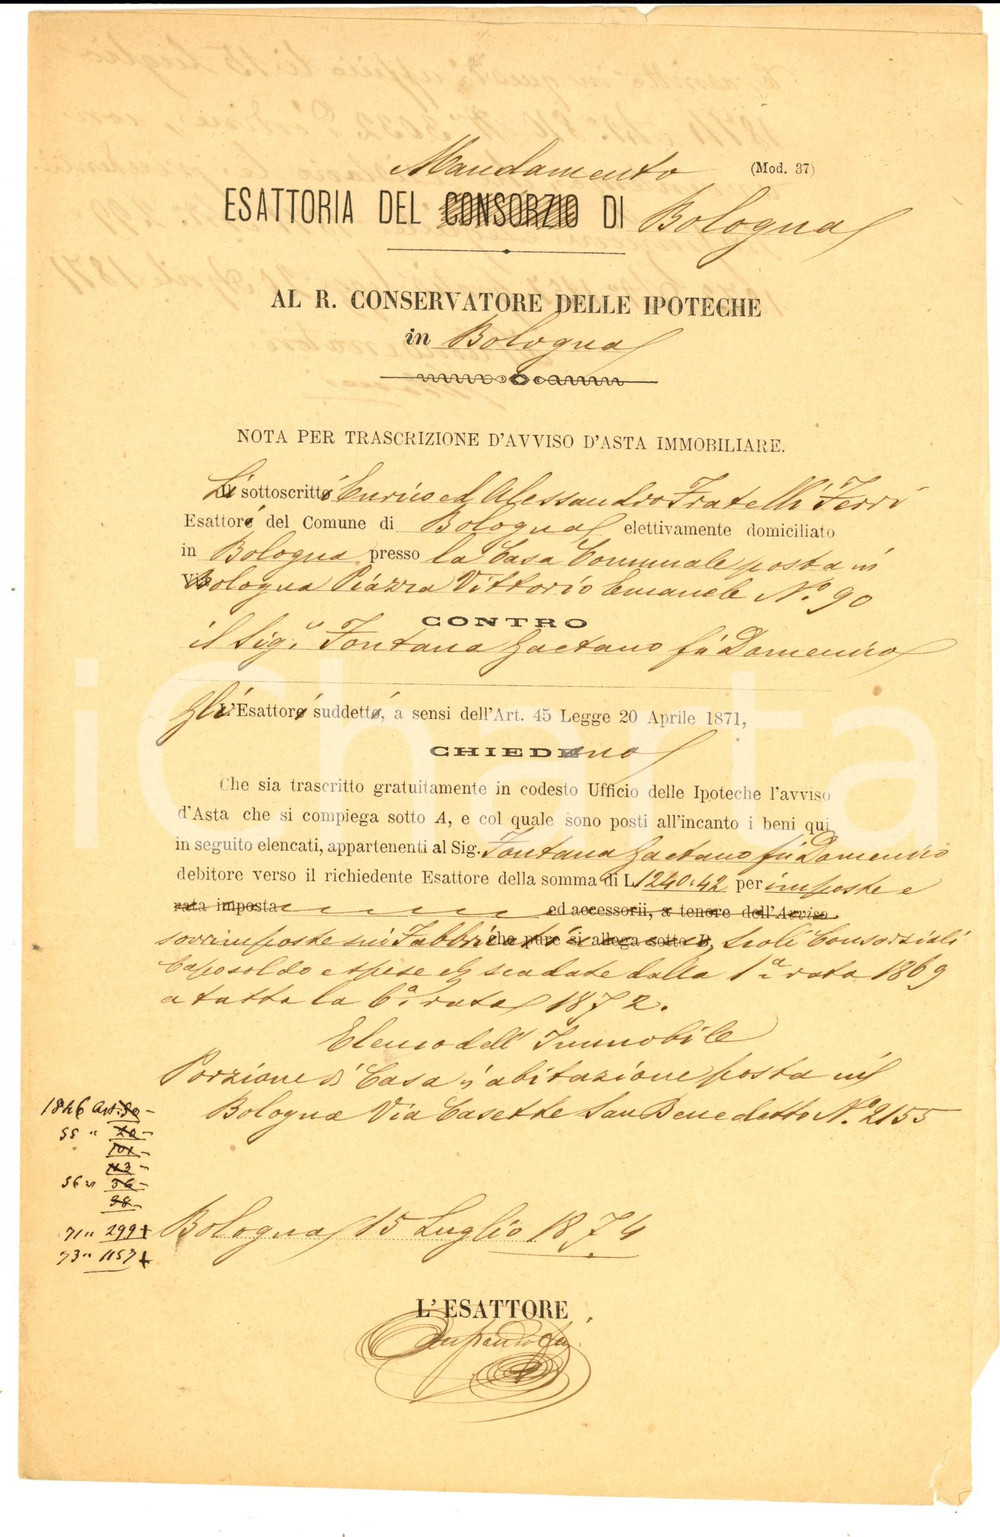 Mandamento
(Mod. 37)
ESATTORIA DEL CONSORZIO DI Bologna
AL R. CONSERVATORE DELLE IPOTECHE
in Bologna
NOTA PER TRASCRIZIONE D'AVVISO D'ASTA IMMOBILIARE.
Li sottoscritti Enrico ed Alessandro Fratelli Ferri
Esattori del Comune di Bologna elettivamente domiciliato
in Bologna presso la Casa Comunale posta in
Bologna Piazza Vittorio Emanuele N.° 90
CONTRO
il Sig.r Fontana Gaetano fù Domenico
Gli Esattori suddetti, a sensi dell'Art. 45 Legge 20 Aprile 1871,
CHIEDEno
Che sia trascritto gratuitamente in codesto Ufficio delle Ipoteche l'avviso
d'Asta che si compiega sotto A, e col quale sono posti all'incanto i beni qui
in seguito elencati, appartenenti al Sig. Fontana Gaetano fù Domenico
debitore verso il richiedente Esattore della somma di L. 1240:42 per imposte e
rata imposta ed accessorii, a tenore dell'Avviso
sovrimposte sui Fabbricati che pure si allega sotto B, Consorziali
Caposoldo e spese scadute dalla 1a rata 1869
a tutta la 6a rata 1872.
Elenco dell'Immobile
Porzione di Casa d'abitazione posta in
Bologna Via Casette San Benedetto N.° 2155
1846 art. 80 -
55 " 70 -
101 -
113 -
56 " 36 -
98
71 " 299 +
73 " 1157 +
Bologna 15 Luglio 1874
L'ESATTORE
iCharta